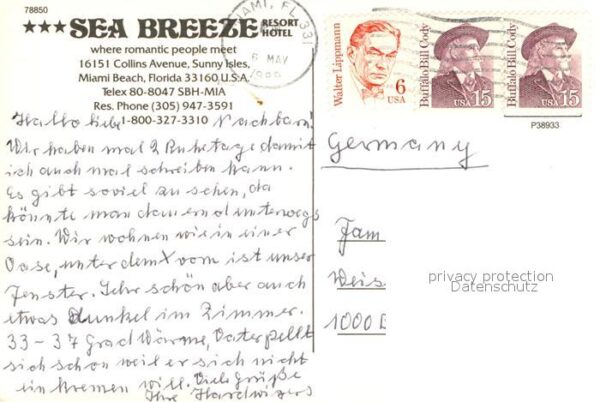 78850
★★★SEA BREEZE RESORT HOTEL
where romantic people meet
16151 Collins Avenue, Sunny Isles,
Miami Beach, Florida 33160 U.S.A.
Telex 80-8047 SBH-MIA
Res. Phone (305) 947-3591
1-800-327-3310
MIAMI, FL 331
6 MAY
Walter Lippmann
6 USA
Buffalo Bill Cody
USA 15
Buffalo Bill Cody
USA 15
P38933
Hallo liebe Nachbarn!
Wir haben mal 2 Ruhetage damit
ich auch mal schreiben kann.
Es gibt soviel zu sehen, da
könnte man dauernd unterwegs
sein. Wir wohnen wie in einer
Oase, unter dem X vorn ist unser
Fenster. Sehr schön aber auch
etwas dunkel im Zimmer.
33-37 Grad Wärme, Vater pellt
sich schon weil er sich nicht
einkremen will. Viele Grüße
Ihre
Germany
Fam
Weis
1000 B
privacy protection
Datenschutz